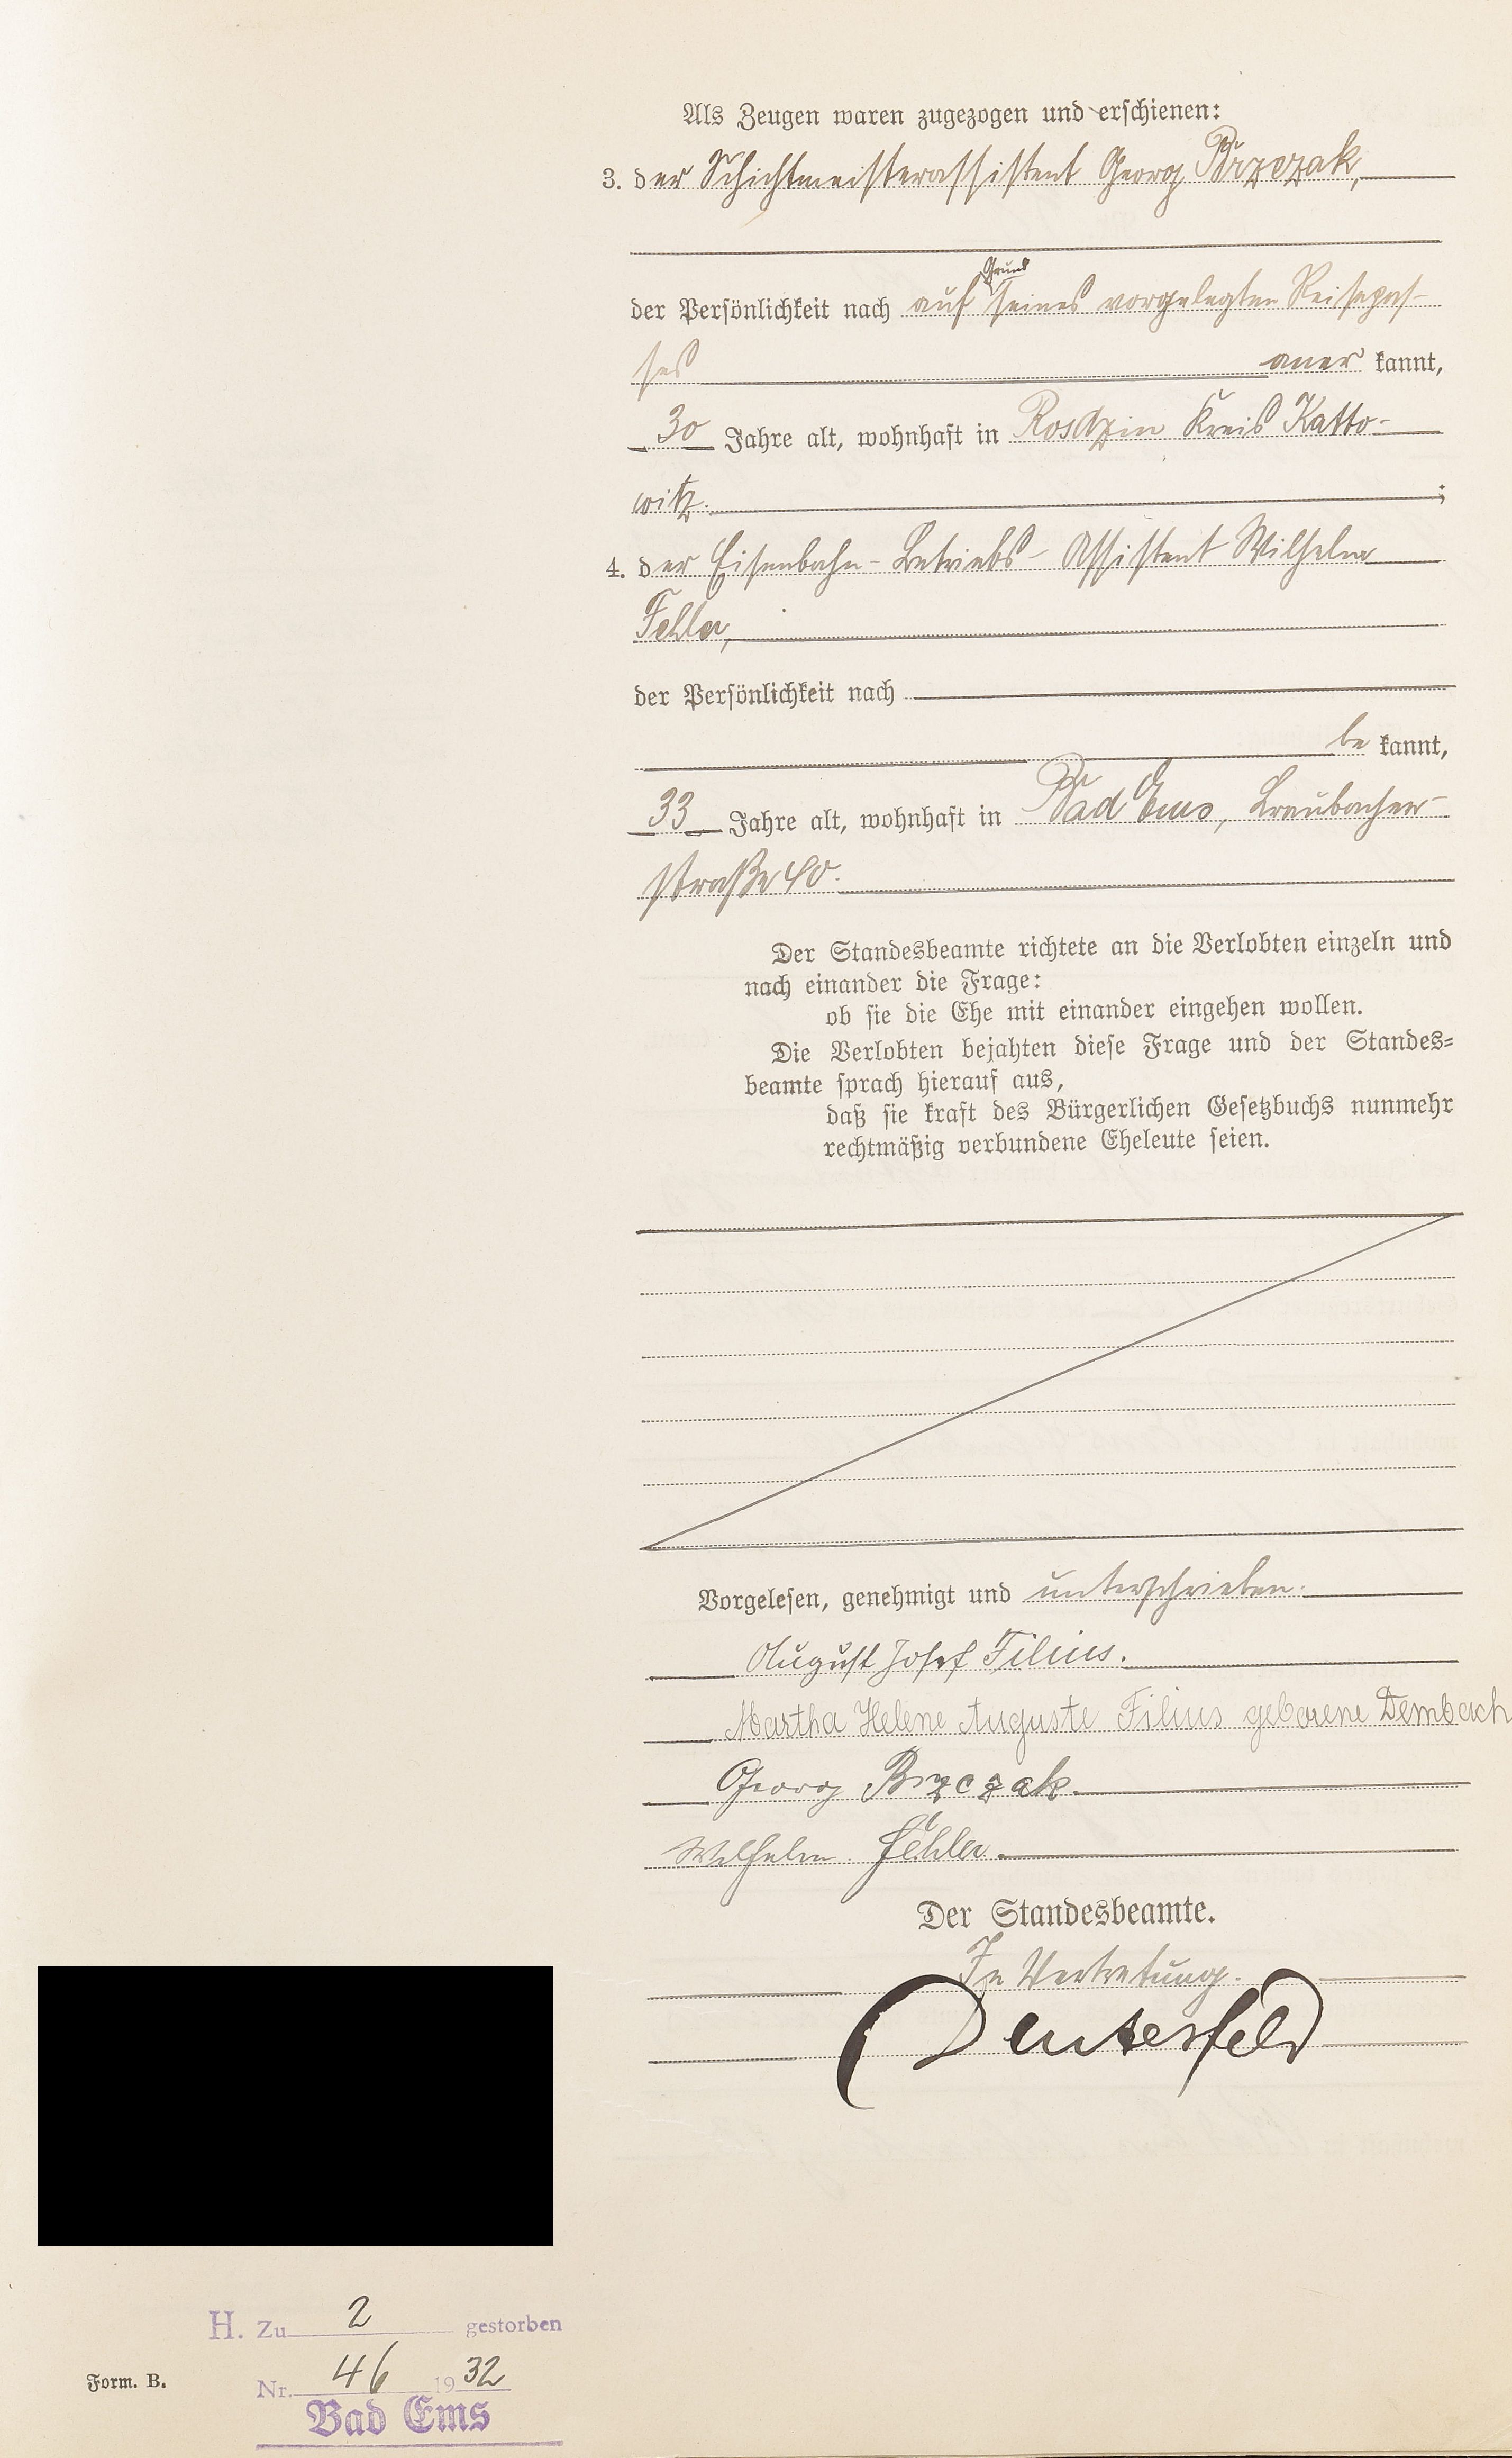 Als Zeugen waren zugezogen und erschienen:
3. der Schichtmeisterassistent Georg Brzczak,
Grund
der Persönlichkeit nach auf seines vorgelegten Reisepas-
ses anerkannt,
30 Jahre alt, wohnhaft in Rosdzin Kreis Katto-
witz. ;
4. der Eisenbahn-Betriebs-Assistent Wilhelm
Fehler,
der Persönlichkeit nach
be kannt,
33 Jahre alt, wohnhaft in Bad Ems, Braubacher-
straße 40.
Der Standesbeamte richtete an die Verlobten einzeln und
nach einander die Frage:
ob sie die Ehe mit einander eingehen wollen.
Die Verlobten bejahten diese Frage und der Standes-
beamte sprach hierauf aus,
daß sie kraft des Bürgerlichen Gesetzbuchs nunmehr
rechtmäßig verbundene Eheleute seien.
Vorgelesen, genehmigt und unterschrieben.
August Josef Filius.
Martha Helene Auguste Filius geborene Dembach
Georg Brzczak.
Wilhelm Fehler.
Der Standesbeamte.
In Vertretung.
Deusesfeld
H. Zu 2 gestorben
Form. B.
Nr. 46 1932
Bad Ems